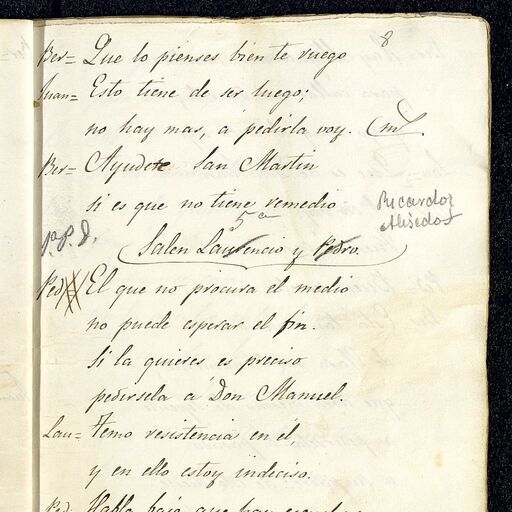 8
Ber= Que lo pienses bien te ruego
Juan= Esto tiene de ser luego;
no hay mas, á pedirla voy.
Ber= Ayudete San Martin
si es que no tiene remedio
Ricardo
5ª
1ª P. D.
Salen Laurencio y Pedro.
Ped= El que no procura el medio
no puede esperar el fin.
Si la quieres es preciso
pedirsela á Don Manuel.
Lau= Temo resistencia en él,
y en ello estoy indeciso.
Ped Habla bajo que hay